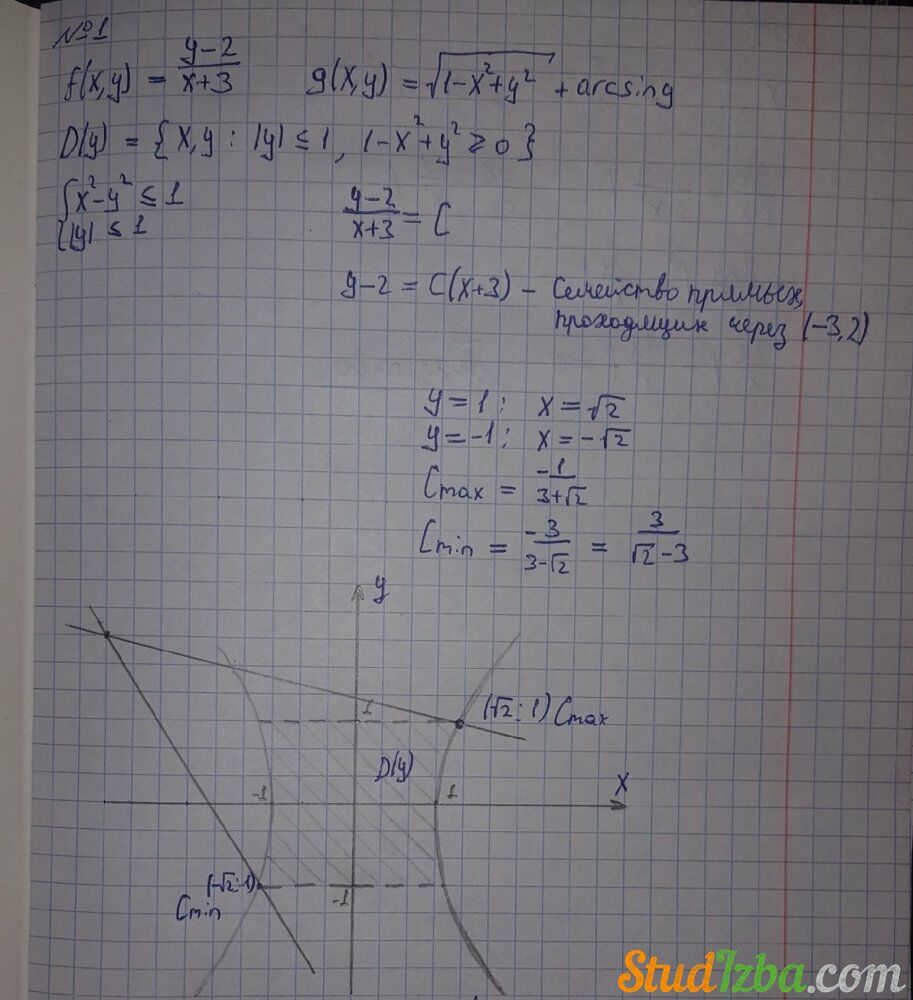 №1
f(x,y) = \frac{y-2}{x+3} g(x,y) = \sqrt{1-x^2+y^2} + arcsin y
D(g) = {x,y : |y| ≤ 1, 1-x^2+y^2 ≥ 0}
{x^2-y^2 ≤ 1
{|y| ≤ 1
\frac{y-2}{x+3} = C
y-2 = C(x+3) – Семейство прямых,
проходящих через (-3,2)
y=1: x=√2
y=-1: x=-√2
Cmax = \frac{-1}{3+√2}
Cmin = \frac{-3}{3-√2} = \frac{3}{√2-3}
y
1
(√2;1) Cmax
D(g)
-1
1
x
(-√2;-1)
Cmin
-1
StudIzba.com